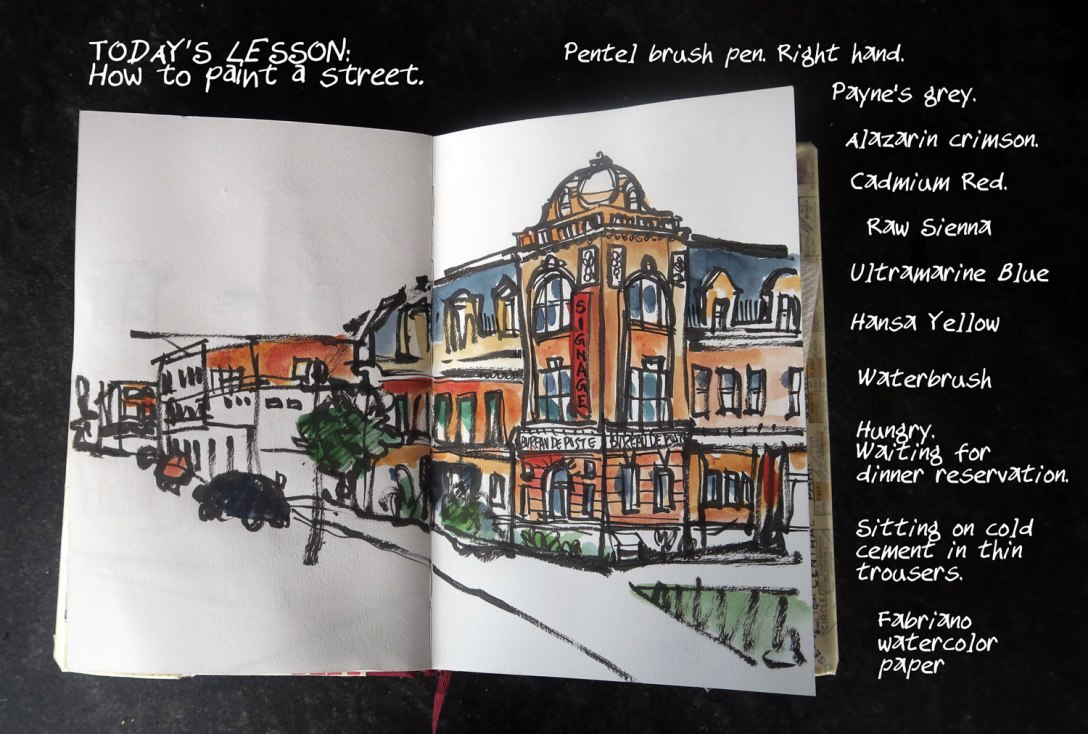 TODAY'S LESSON:
How to paint a street.
Pentel brush pen. Right hand.
Payne's grey.
Alazarin crimson.
Cadmium Red.
Raw Sienna
Ultramarine Blue
Hansa Yellow
Waterbrush
Hungry.
Waiting for
dinner reservation.
Sitting on cold
cement in thin
trousers.
Fabriano
watercolor
paper
SIGNAGE
BUREAU DE POSTE
BUREAU DE POSTE
CENTRAL